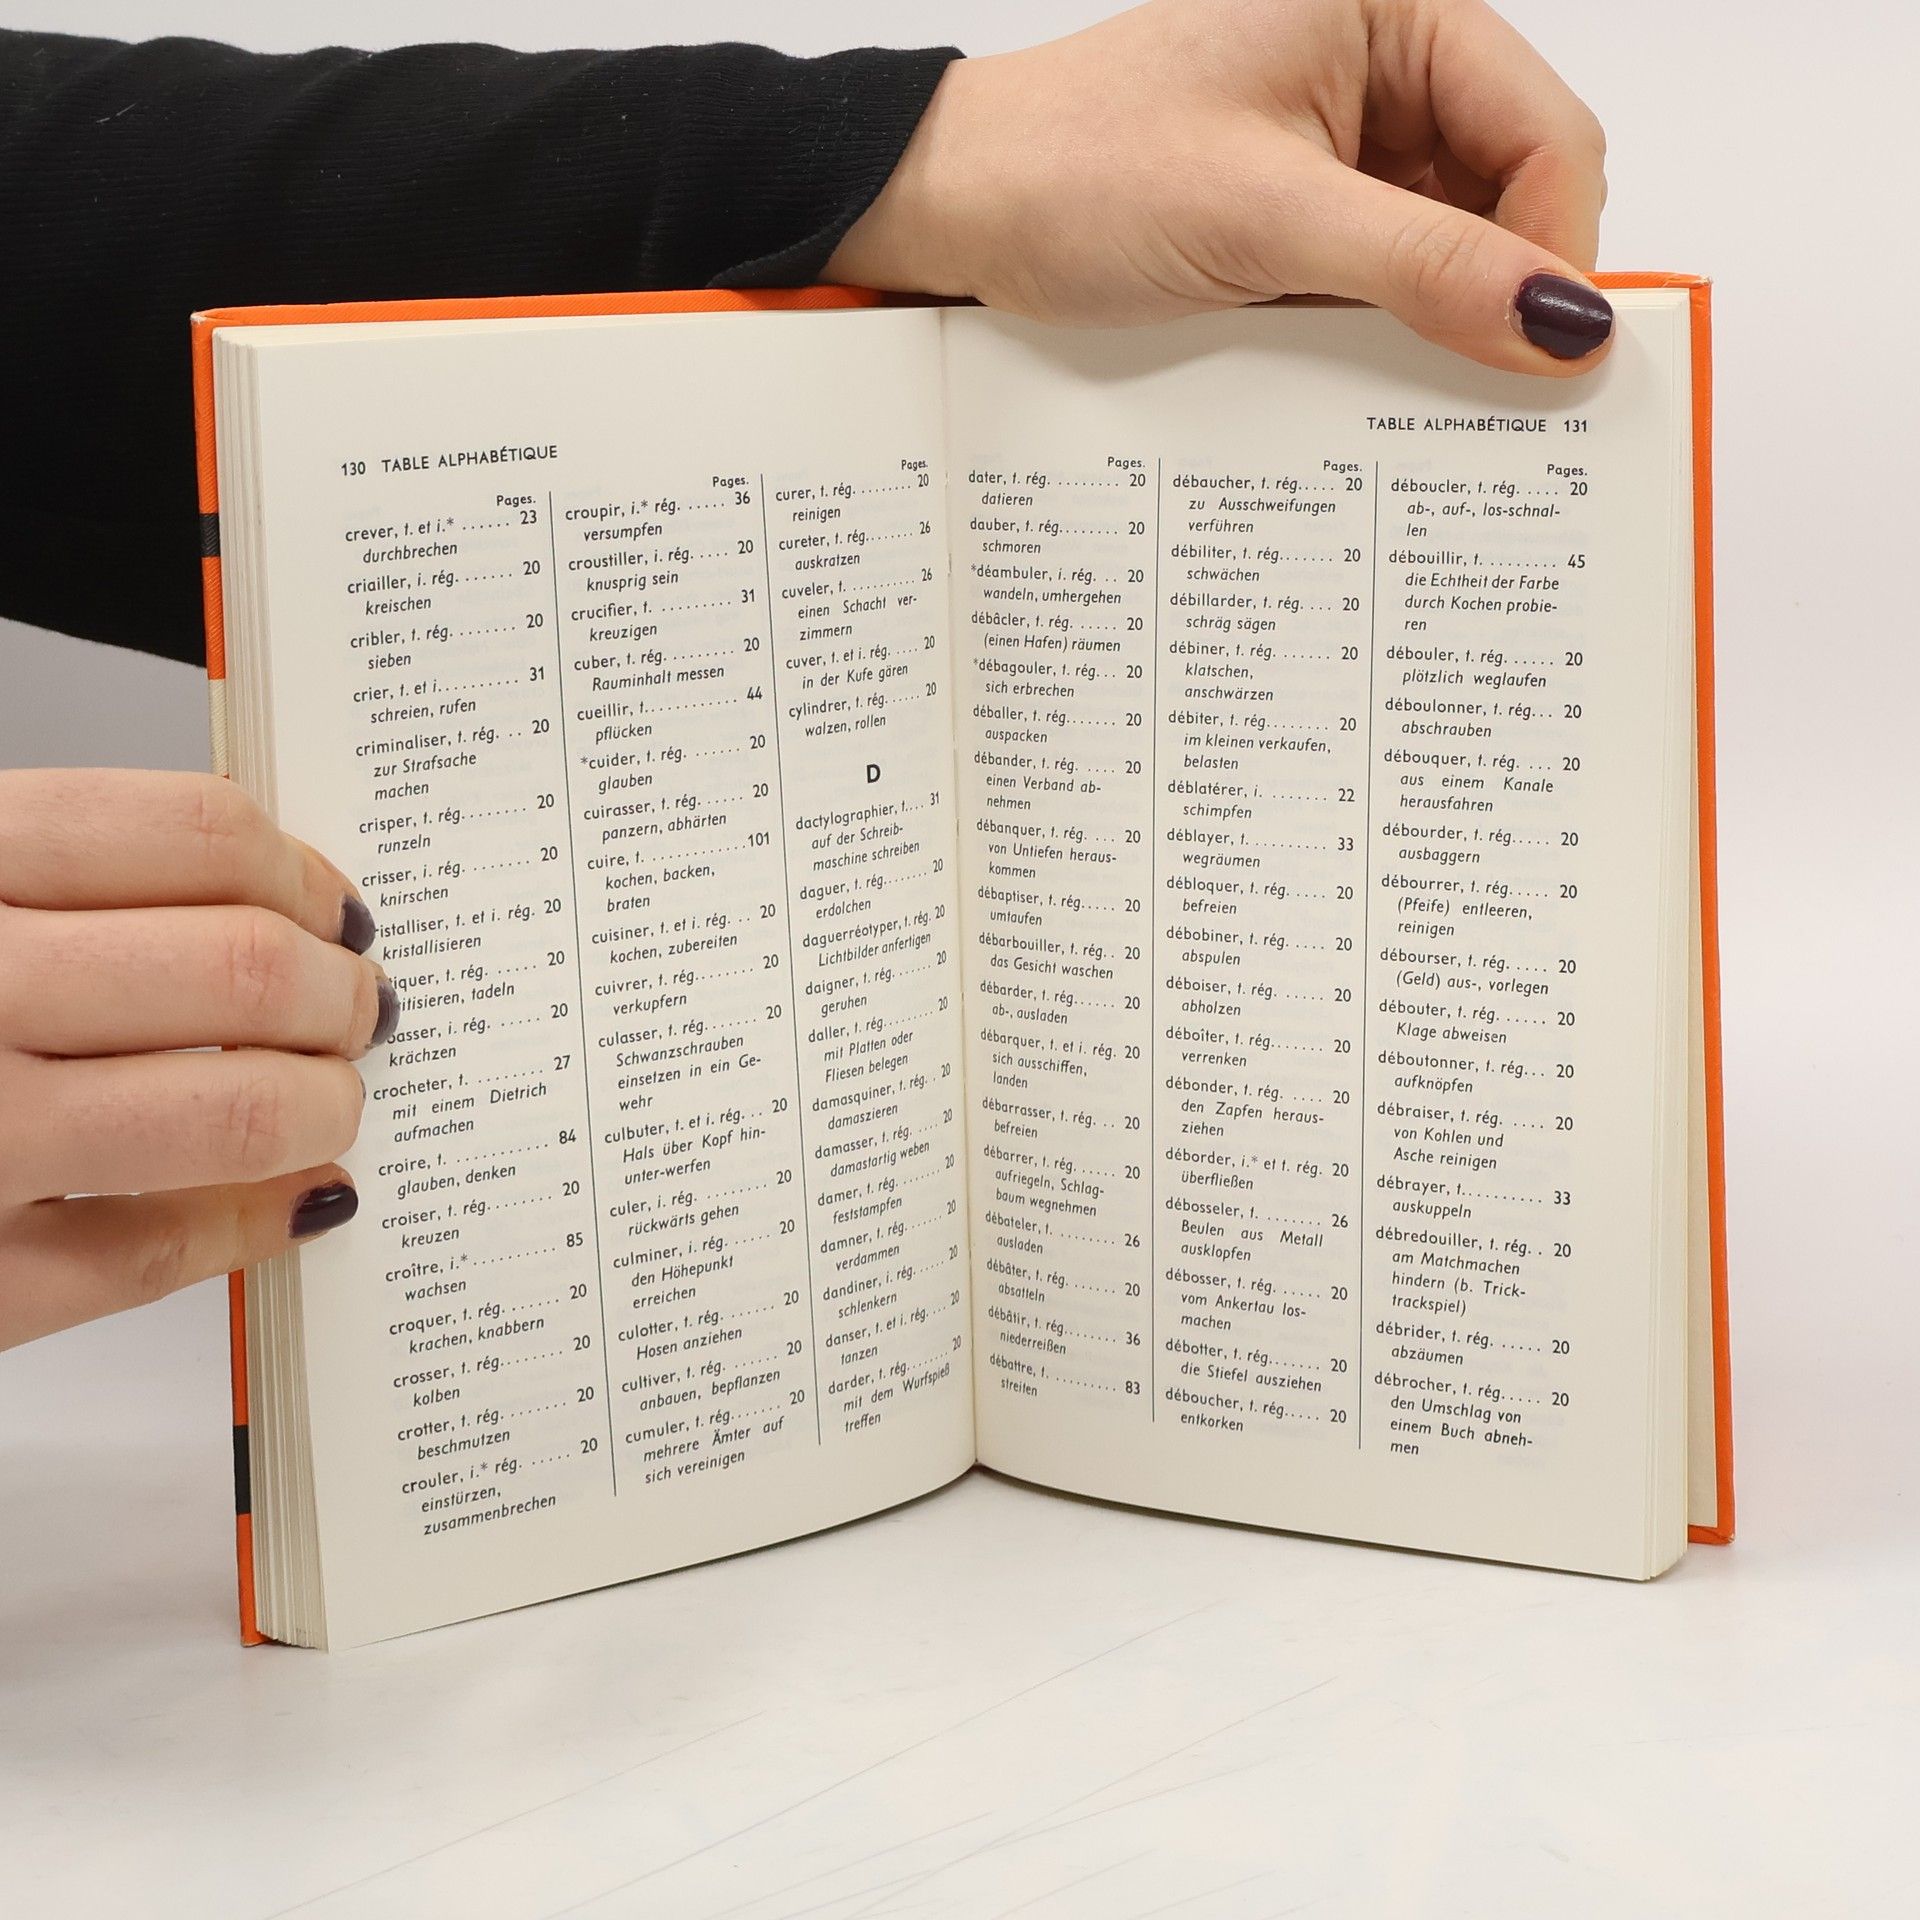 130 TABLE ALPHABÉTIQUE
Pages.
crever, t. et i.* ...... 23
durchbrechen
criailler, i. rég. ....... 20
kreischen
cribler, t. rég. ........ 20
sieben
crier, t. et i. .......... 31
schreien, rufen
criminaliser, t. rég. .. 20
zur Strafsache
machen
crisper, t. rég. ........ 20
runzeln
crisser, i. rég. ........ 20
knirschen
ristalliser, t. et i. rég. 20
kristallisieren
iquer, t. rég. ...... 20
itisieren, tadeln
asser, i. rég. ...... 20
krächzen
crocheter, t. ......... 27
mit einem Dietrich
aufmachen
croire, t. ............ 84
glauben, denken
croiser, t. rég. ........ 20
kreuzen
croître, i.* .......... 85
wachsen
croquer, t. rég. ....... 20
krachen, knabbern
crosser, t. rég. ....... 20
kolben
crotter, t. rég. ....... 20
beschmutzen
crouler, i.* rég. ...... 20
einstürzen,
zusammenbrechen
Pages.
croupir, i.* rég. ...... 36
versumpfen
croustiller, i. rég. ..... 20
knusprig sein
crucifier, t. .......... 31
kreuzigen
cuber, t. rég. ......... 20
Rauminhalt messen
cueillir, t. ............ 44
pflücken
*cuider, t. rég. ....... 20
glauben
cuirasser, t. rég. ...... 20
panzern, abhärten
cuire, t. ............. 101
kochen, backen,
braten
cuisiner, t. et i. rég. .. 20
kochen, zubereiten
cuivrer, t. rég. ........ 20
verkupfern
culasser, t. rég. ....... 20
Schwanzschrauben
einsetzen in ein Ge-
wehr
culbuter, t. et i. rég. .. 20
Hals über Kopf hin-
unter-werfen
culer, i. rég. ......... 20
rückwärts gehen
culminer, i. rég. ...... 20
den Höhepunkt
erreichen
culotter, t. rég. ....... 20
Hosen anziehen
cultiver, t. rég. ....... 20
anbauen, bepflanzen
cumuler, t. rég. ....... 20
mehrere Ämter auf
sich vereinigen
Pages.
curer, t. rég. ......... 20
reinigen
cureter, t. rég. ........ 26
auskratzen
cuveler, t. ........... 26
einen Schacht ver-
zimmern
cuver, t. et i. rég. .... 20
in der Kufe gären
cylindrer, t. rég. ...... 20
walzen, rollen
D
dactylographier, t. ... 31
auf der Schreib-
maschine schreiben
daguer, t. rég. ........ 20
erdolchen
daguerréotyper, t. rég. 20
Lichtbilder anfertigen
daigner, t. rég. ....... 20
geruhen
daller, t. rég. ........ 20
mit Platten oder
Fliesen belegen
damasquiner, t. rég. .. 20
damaszieren
damasser, t. rég. .... 20
damastartig weben
damer, t. rég. ....... 20
feststampfen
damner, t. rég. ...... 20
verdammen
dandiner, i. rég. ..... 20
schlenkern
danser, t. et i. rég. ... 20
tanzen
darder, t. rég. ....... 20
mit dem Wurfspieß
treffen
TABLE ALPHABÉTIQUE 131
Pages.
dater, t. rég. ........ 20
datieren
dauber, t. rég. ....... 20
schmoren
*déambuler, i. rég. .. 20
wandeln, umhergehen
débâcler, t. rég. ...... 20
(einen Hafen) räumen
*débagouler, t. rég. ... 20
sich erbrechen
déballer, t. rég. ...... 20
auspacken
débander, t. rég. .... 20
einen Verband ab-
nehmen
débanquer, t. rég. ... 20
von Untiefen heraus-
kommen
débaptiser, t. rég. .... 20
umtaufen
débarbouiller, t. rég. .. 20
das Gesicht waschen
débarder, t. rég. ..... 20
ab-, ausladen
débarquer, t. et i. rég. 20
sich ausschiffen,
landen
débarrasser, t. rég. ... 20
befreien
débarrer, t. rég. ..... 20
aufriegeln, Schlag-
baum wegnehmen
débateler, t. ......... 26
ausladen
débâter, t. rég. ...... 20
absatteln
débâtir, t. rég. ....... 36
niederreißen
débattre, t. .......... 83
streiten
Pages.
débaucher, t. rég. .... 20
zu Ausschweifungen
verführen
débiliter, t. rég. ...... 20
schwächen
débillarder, t. rég. .... 20
schräg sägen
débiner, t. rég. ....... 20
klatschen,
anschwärzen
débiter, t. rég. ....... 20
im kleinen verkaufen,
belasten
déblatérer, i. ........ 22
schimpfen
déblayer, t. .......... 33
wegräumen
débloquer, t. rég. .... 20
befreien
débobiner, t. rég. .... 20
abspulen
déboiser, t. rég. ..... 20
abholzen
déboîter, t. rég. ...... 20
verrenken
débonder, t. rég. .... 20
den Zapfen heraus-
ziehen
déborder, i.* et t. rég. 20
überfließen
débosseler, t. ........ 26
Beulen aus Metall
ausklopfen
débosser, t. rég. ..... 20
vom Ankertau los-
machen
débotter, t. rég. ...... 20
die Stiefel ausziehen
déboucher, t. rég. .... 20
entkorken
Pages.
déboucler, t. rég. .... 20
ab-, auf-, los-schnal-
len
débouillir, t. ......... 45
die Echtheit der Farbe
durch Kochen probie-
ren
débouler, t. rég. ..... 20
plötzlich weglaufen
déboulonner, t. rég. .. 20
abschrauben
débouquer, t. rég. ... 20
aus einem Kanale
herausfahren
débourder, t. rég. .... 20
ausbaggern
débourrer, t. rég. .... 20
(Pfeife) entleeren,
reinigen
débourser, t. rég. .... 20
(Geld) aus-, vorlegen
débouter, t. rég. ..... 20
Klage abweisen
déboutonner, t. rég. .. 20
aufknöpfen
débraiser, t. rég. .... 20
von Kohlen und
Asche reinigen
débrayer, t. .......... 33
auskuppeln
débredouiller, t. rég. .. 20
am Matchmachen
hindern (b. Trick-
trackspiel)
débrider, t. rég. ..... 20
abzäumen
débrocher, t. rég. .... 20
den Umschlag von
einem Buch abneh-
men